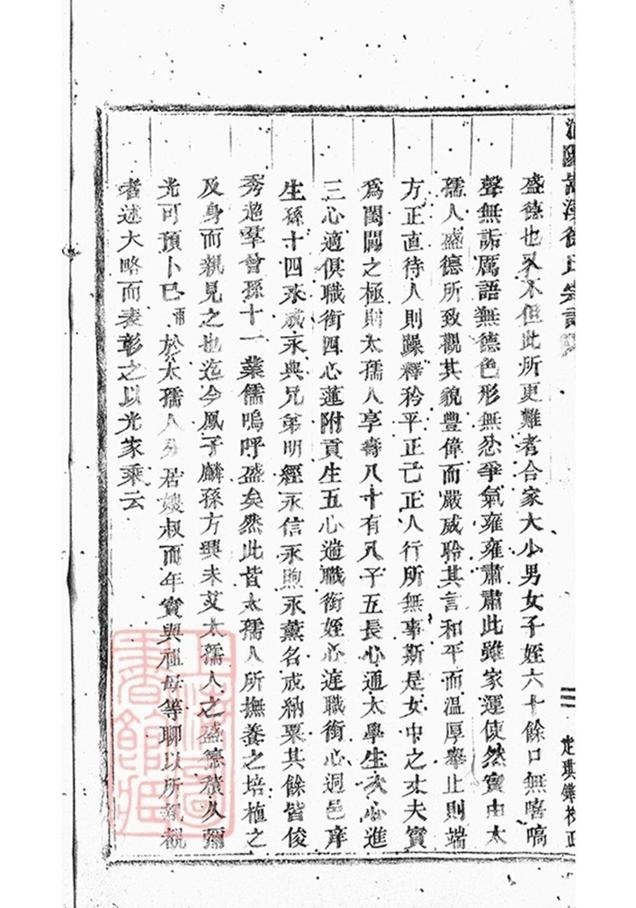 盛德也又不但此所更難者合家大小男女子姪六十餘口無嘻嗃
聲無詬厲語無德色形無忿爭氣雍雍肅肅此雖家運使然實由太
孺人盛德所致觀其貌豐偉而嚴威聆其言和平而溫厚舉止則端
方正直待人則躁釋矜平正己正人行所無事斯是女中之丈夫實
爲閨閫之極則太孺人享壽八十有八子五長心通太學生次心進
三心適俱職銜四心蓮附貢生五心適職銜姪心達職銜心迥邑庠
生孫十四永成永與兄弟明經永信永煦永薰名成納粟其餘皆俊
秀超羣曾孫十一業儒嗚呼盛矣然此皆太孺人所撫養之培植之
及身而親見之也迄今鳳子麟孫方興未艾太孺人之盛德積久彌
光可預卜已 於太孺人分居嫂叔而年實與祖母等聊以所親觀
者述大略而表彰之以光家乘云
徐氏宗譜
校正